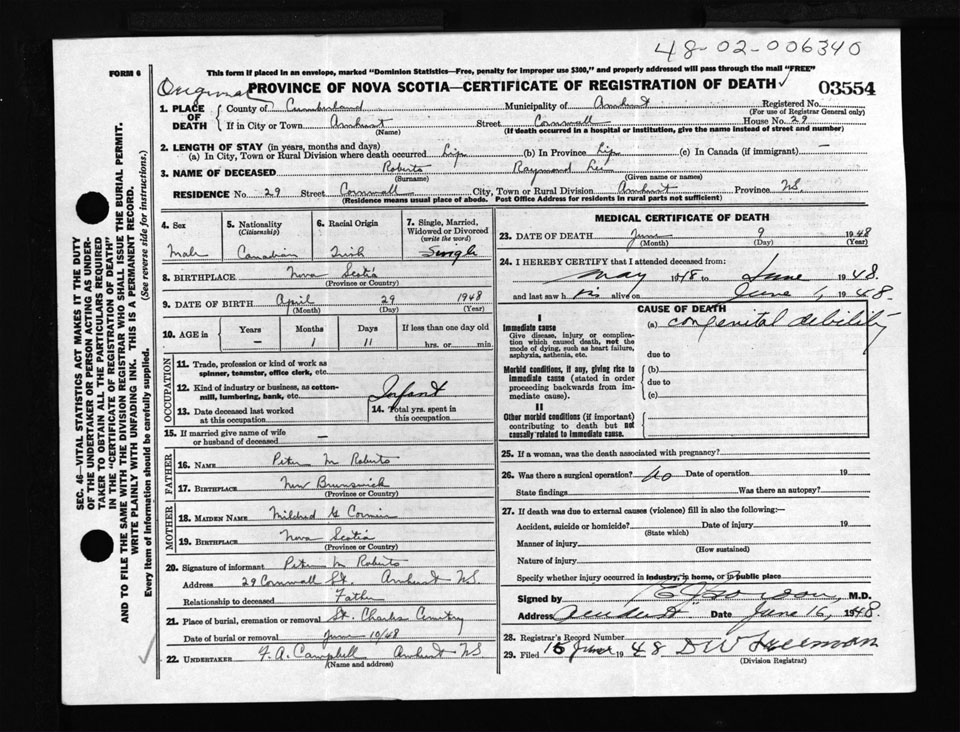 48-02-006340
FORM 6
This form if placed in an envelope, marked "Dominion Statistics—Free, penalty for improper use $300," and properly addressed will pass through the mail "FREE"
Original
PROVINCE OF NOVA SCOTIA—CERTIFICATE OF REGISTRATION OF DEATH ✓ 03554
1. PLACE OF DEATH
County of Cumberland Municipality of Amherst Registered No.
(For use of Registrar General only)
If in City or Town Amherst Street Cornwall House No. 29
(Name) (If death occurred in a hospital or institution, give the name instead of street and number)
2. LENGTH OF STAY (in years, months and days)
(a) In City, Town or Rural Division where death occurred Life (b) In Province Life (c) In Canada (if immigrant) —
3. NAME OF DECEASED Roberts Raymond Lee
(Surname) (Given name or names)
RESIDENCE No. 29 Street Cornwall City, Town or Rural Division Amherst Province NS.
(Residence means usual place of abode. Post Office Address for residents in rural parts not sufficient)
4. Sex
Male
5. Nationality
(Citizenship)
Canadian
6. Racial Origin
Irish
7. Single, Married, Widowed or Divorced
(write the word)
Single
8. BIRTHPLACE Nova Scotia
(Province or Country)
9. DATE OF BIRTH April 29 1948
(Month) (Day) (Year)
10. AGE in Years Months Days If less than one day old
— 1 11 hrs. or min.
OCCUPATION
11. Trade, profession or kind of work as spinner, teamster, office clerk, etc.
12. Kind of industry or business, as cotton-mill, lumbering, bank, etc. Infant
13. Date deceased last worked at this occupation
14. Total yrs. spent in this occupation
15. If married give name of wife or husband of deceased —
FATHER
16. NAME Peter M Roberts
17. BIRTHPLACE New Brunswick
(Province or Country)
MOTHER
18. MAIDEN NAME Mildred G Cormier
19. BIRTHPLACE Nova Scotia
(Province or Country)
20. Signature of informant Peter M Roberts
Address 29 Cornwall St. Amherst NS.
Relationship to deceased Father
21. Place of burial, cremation or removal St. Charles Cemetery
Date of burial or removal June 10/48
22. UNDERTAKER F. A. Campbell Amherst NS
(Name and address)
MEDICAL CERTIFICATE OF DEATH
23. DATE OF DEATH June 9 1948
(Month) (Day) (Year)
24. I HEREBY CERTIFY that I attended deceased from:
May 1948 to June 1948.
and last saw h is alive on June 1, 1948.
CAUSE OF DEATH
I
Immediate cause
Give disease, injury or complication which caused death, not the mode of dying, such as heart failure, asphyxia, asthenia, etc.
(a) congenital debility
due to
Morbid conditions, if any, giving rise to immediate cause (stated in order proceeding backwards from immediate cause).
(b)
due to
(c)
II
Other morbid conditions (if important) contributing to death but not causally related to immediate cause.
25. If a woman, was the death associated with pregnancy?
26. Was there a surgical operation? No Date of operation 19
State findings Was there an autopsy?
27. If death was due to external causes (violence) fill in also the following:—
Accident, suicide or homicide? Date of injury 19
(State which)
Manner of injury
(How sustained)
Nature of injury
Specify whether injury occurred in industry, in home, or in public place
Signed by M.D.
Address Amherst Date June 16, 1948.
28. Registrar's Record Number
29. Filed 15 June 1948 D W Freeman
(Division Registrar)
SEC. 46—VITAL STATISTICS ACT MAKES IT THE DUTY
OF THE UNDERTAKER OR PERSON ACTING AS UNDER-
TAKER TO OBTAIN ALL THE PARTICULARS REQUIRED
IN THE "CERTIFICATE OF REGISTRATION OF DEATH"
AND TO FILE THE SAME WITH THE DIVISION REGISTRAR WHO SHALL ISSUE THE BURIAL PERMIT.
WRITE PLAINLY WITH UNFADING INK. THIS IS A PERMANENT RECORD.
Every item of information should be carefully supplied. (See reverse side for instructions.)